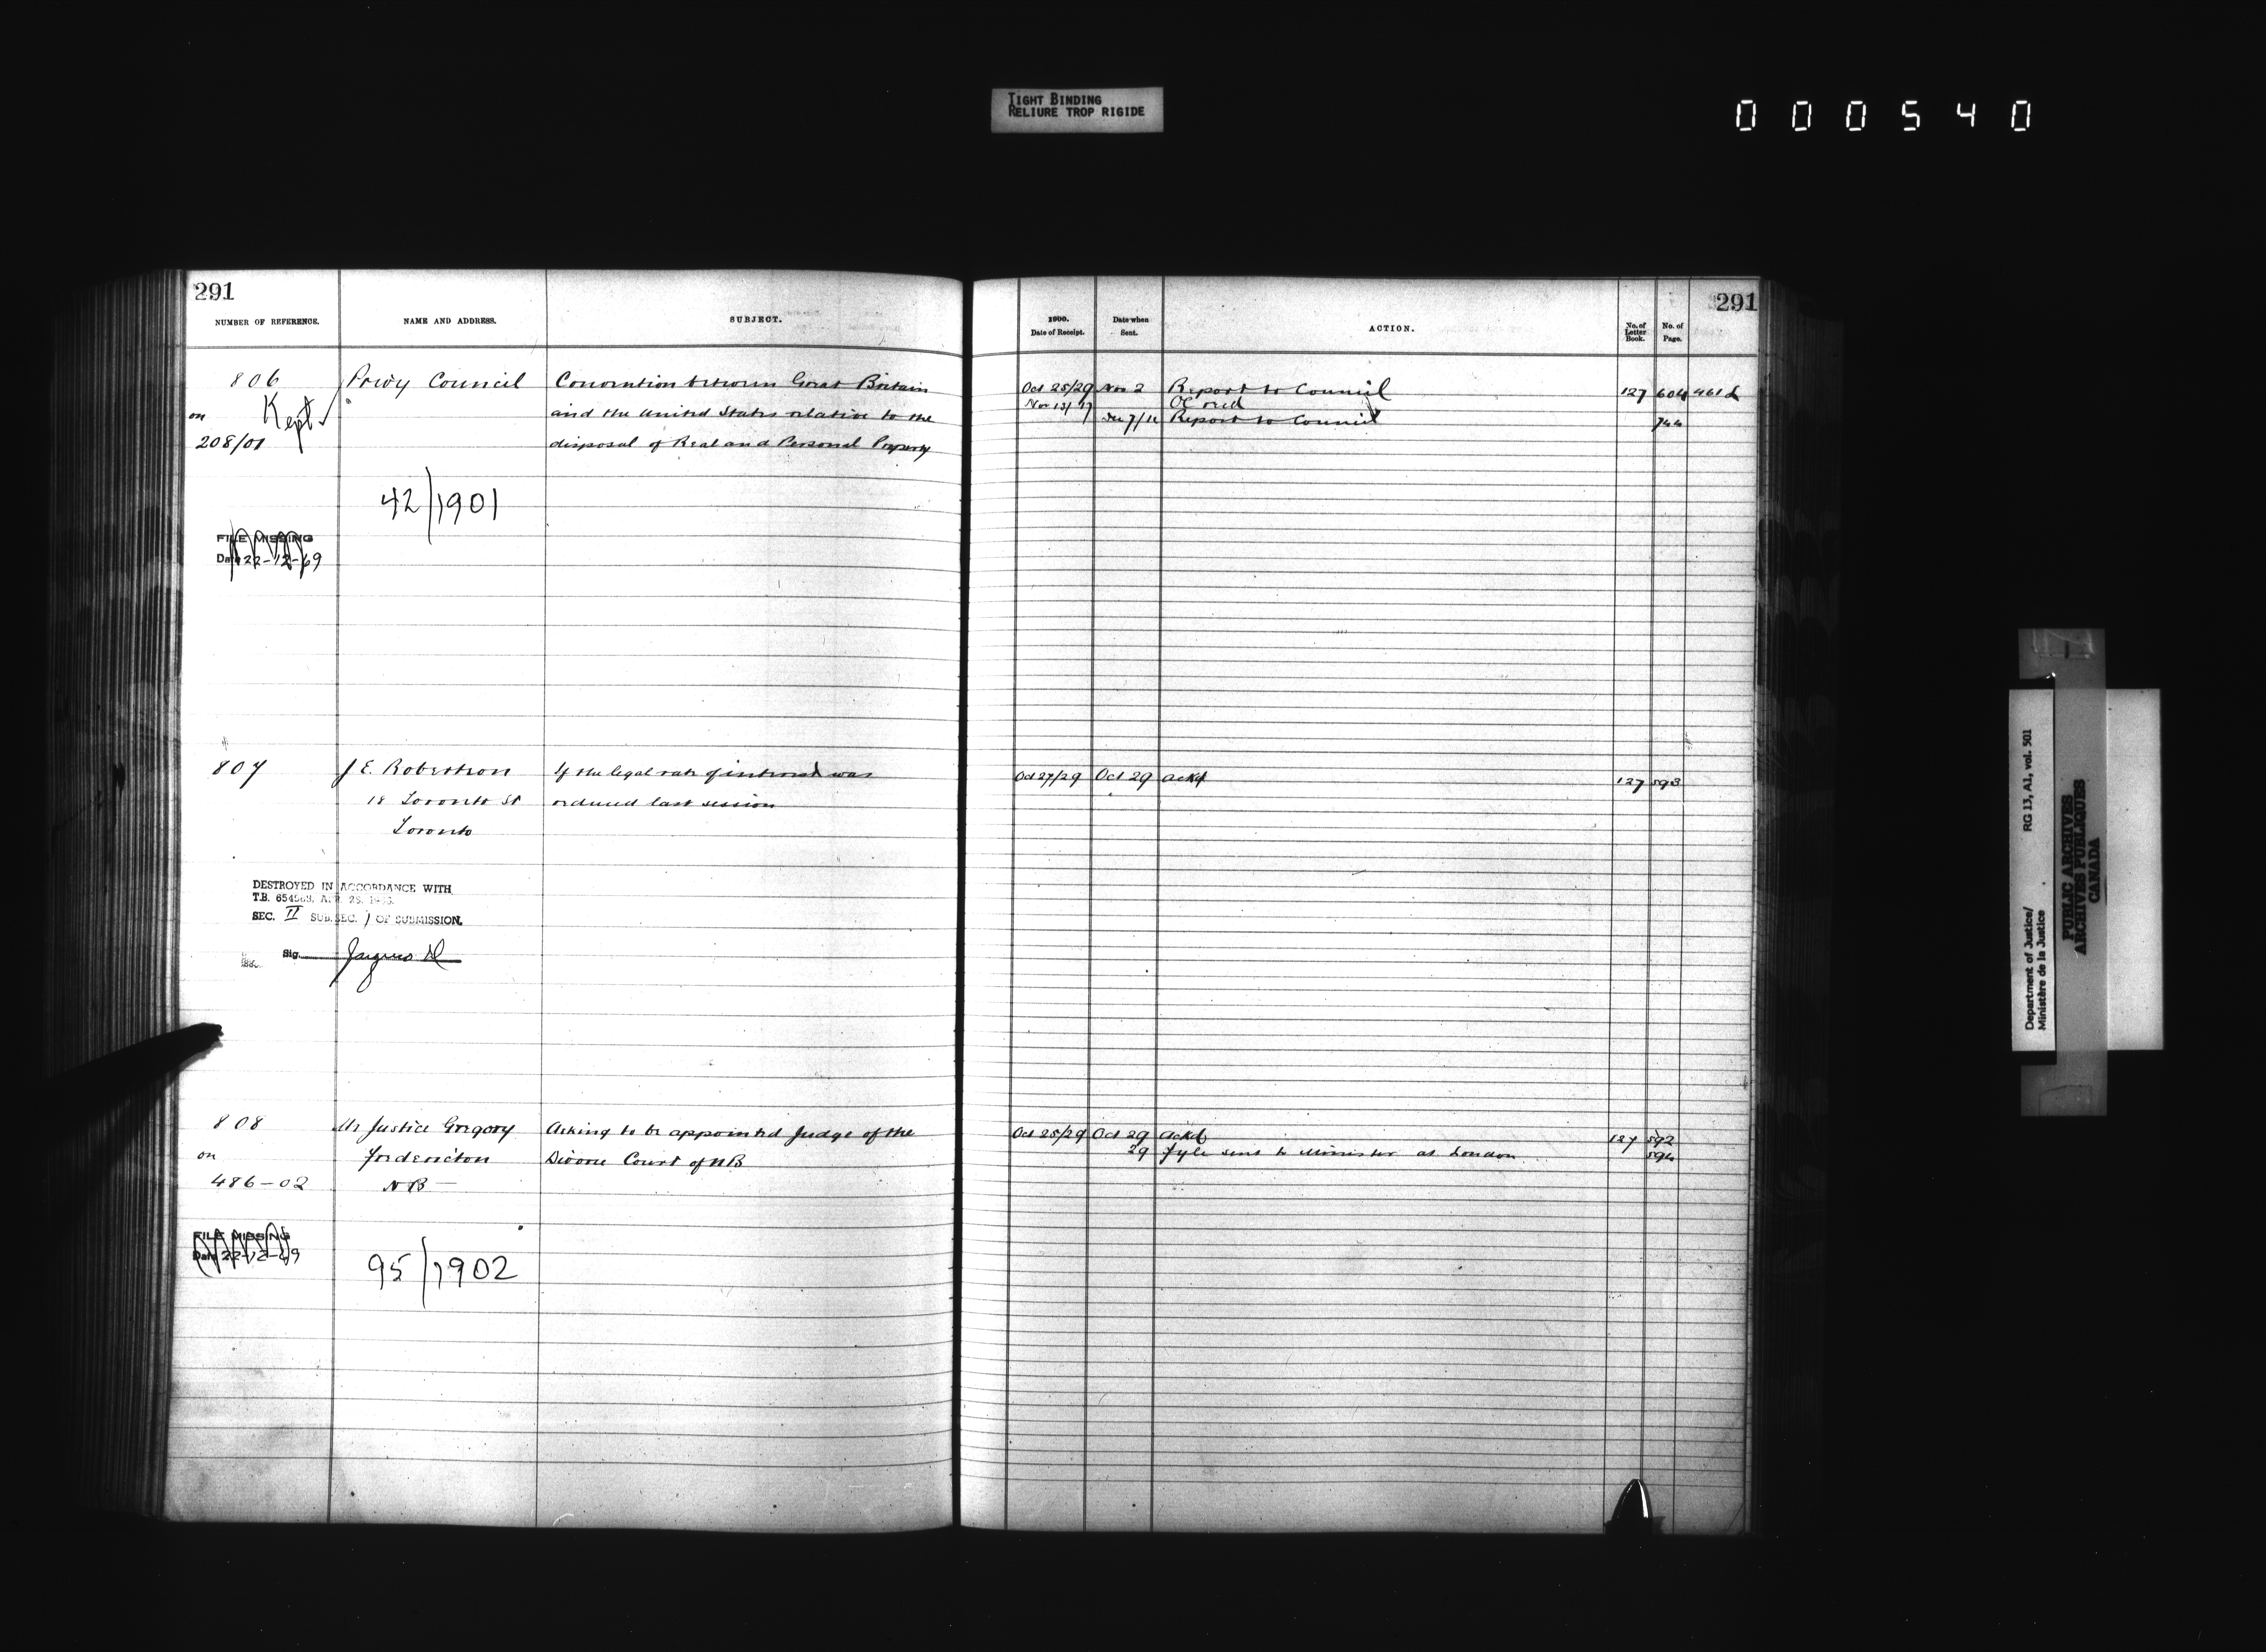 TIGHT BINDING
RELIURE TROP RIGIDE
000540
291
NUMBER OF REFERENCE.
NAME AND ADDRESS.
SUBJECT.
806
on
208/01
Kept
Privy Council
Convention between Great Britain
and the United States relative to the
disposal of Real and Personal Property
42/1901
FILE MISSING
Date 22-12-69
807
J E. Robertson
18 Toronto St
Toronto
If the legal rate of interest was
reduced last session
DESTROYED IN ACCORDANCE WITH
T.B. 654563. APR. 29.
SEC. II SUB. SEC. 1 OF SUBMISSION.
Sig.
808
on
486-02
Mr Justice Gregory
Fredericton
NB
Asking to be appointed Judge of the
Divorce Court of NB
FILE MISSING
Date 22-12-69
95/1902
291
1900.
Date of Receipt.
Date when
Sent.
ACTION.
No. of
Letter
Book.
No. of
Page.
Oct 25/29 Nov 2 Report to Council 127 604 461
Nov 13/17 OC recd
Dec 7/11 Report to Council 744
Oct 27/29 Oct 29 ackd 127 593
Oct 25/29 Oct 29 ackd 127 592
29 Fyle sent to Minister at London 594
Department of Justice/ RG 13, A1, vol. 501
Ministère de la Justice
PUBLIC ARCHIVES
ARCHIVES PUBLIQUES
CANADA